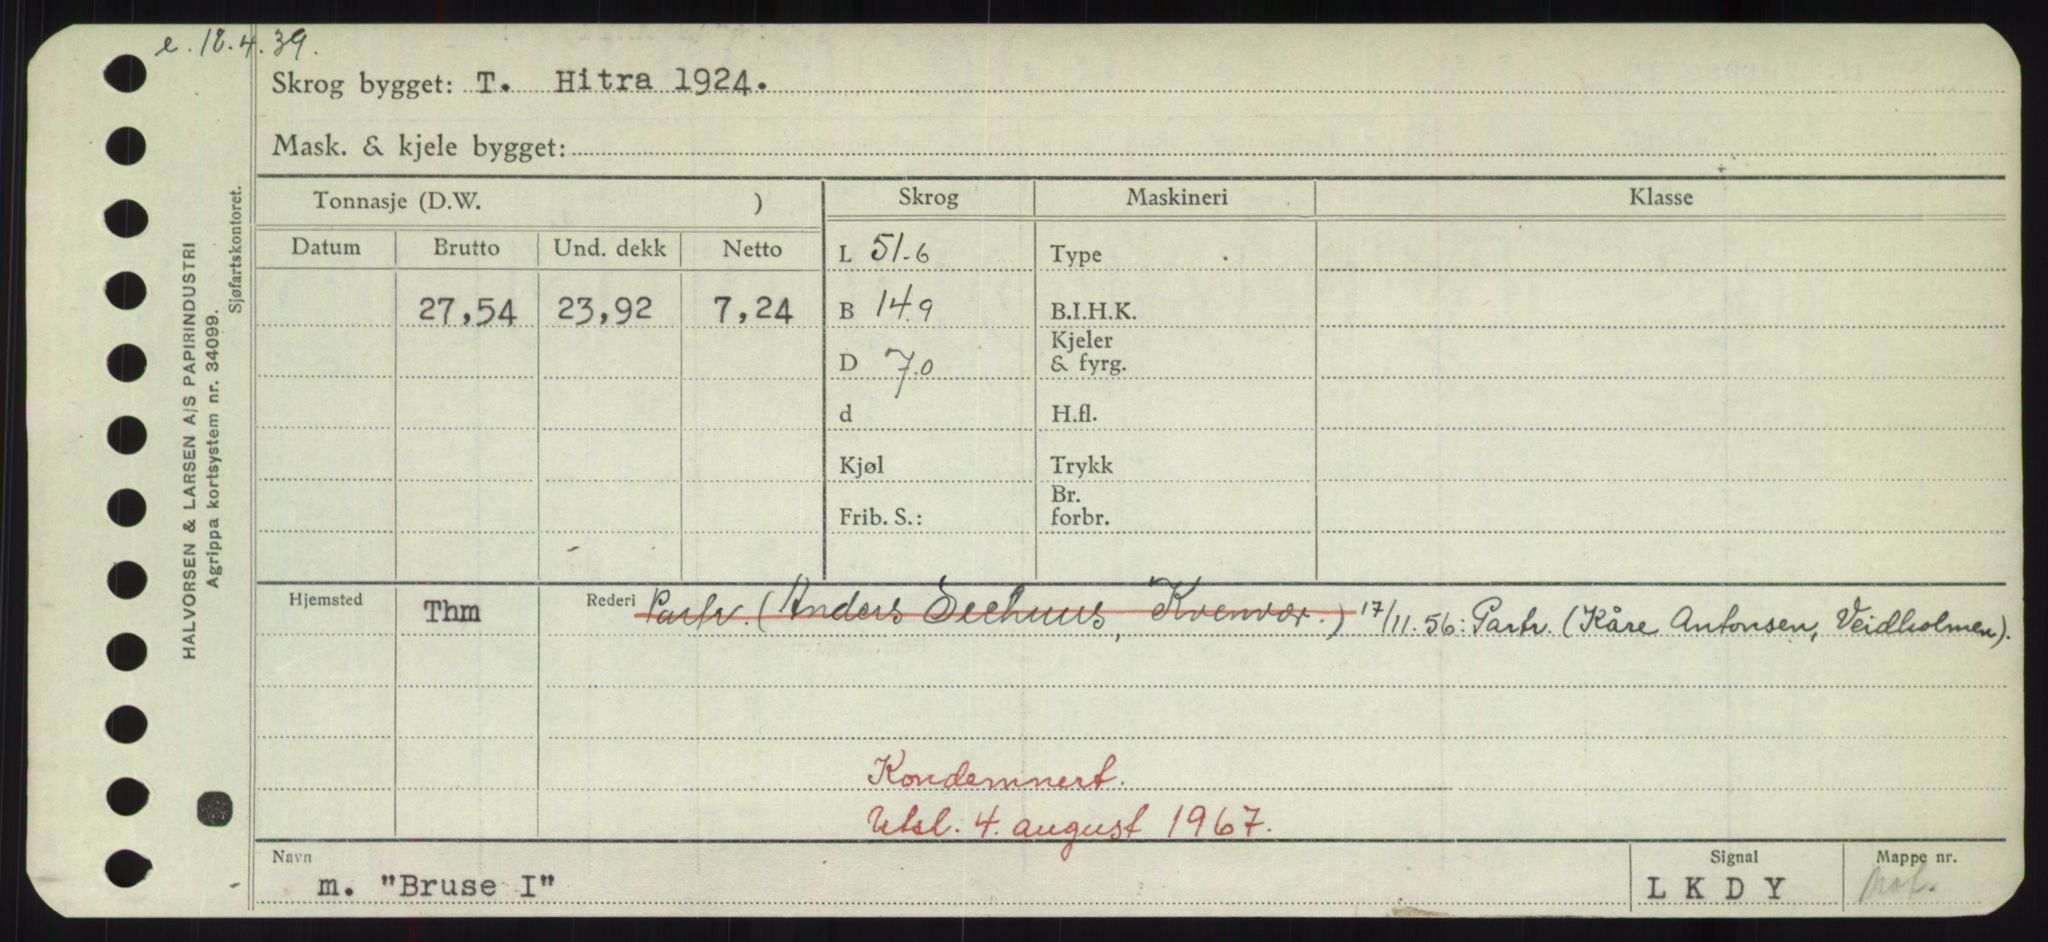 e. 18.4.39.
Skrog bygget: T. Hitra 1924.
Mask. & kjele bygget:
Tonnasje (D.W. ) Skrog Maskineri Klasse
Datum Brutto Und. dekk Netto L 51.6 Type
27,54 23,92 7,24 B 14.9 B.I.H.K.
D 7.0 Kjeler & fyrg.
d H.fl.
Kjøl Trykk
Frib. S.: Br. forbr.
Hjemsted Thm Rederi Partr. (Anders Seehuus, Kvenvær.) 17/11.56: Partr. (Kåre Antonsen, Veidholmen).
Kondemnert.
Utsl. 4. august 1967.
Navn Signal Mappe nr.
m. "Bruse I" LKDY Mot.
HALVORSEN & LARSEN A/S PAPIRINDUSTRI
Agrippa kortsystem nr. 34099.
Sjøfartskontoret.